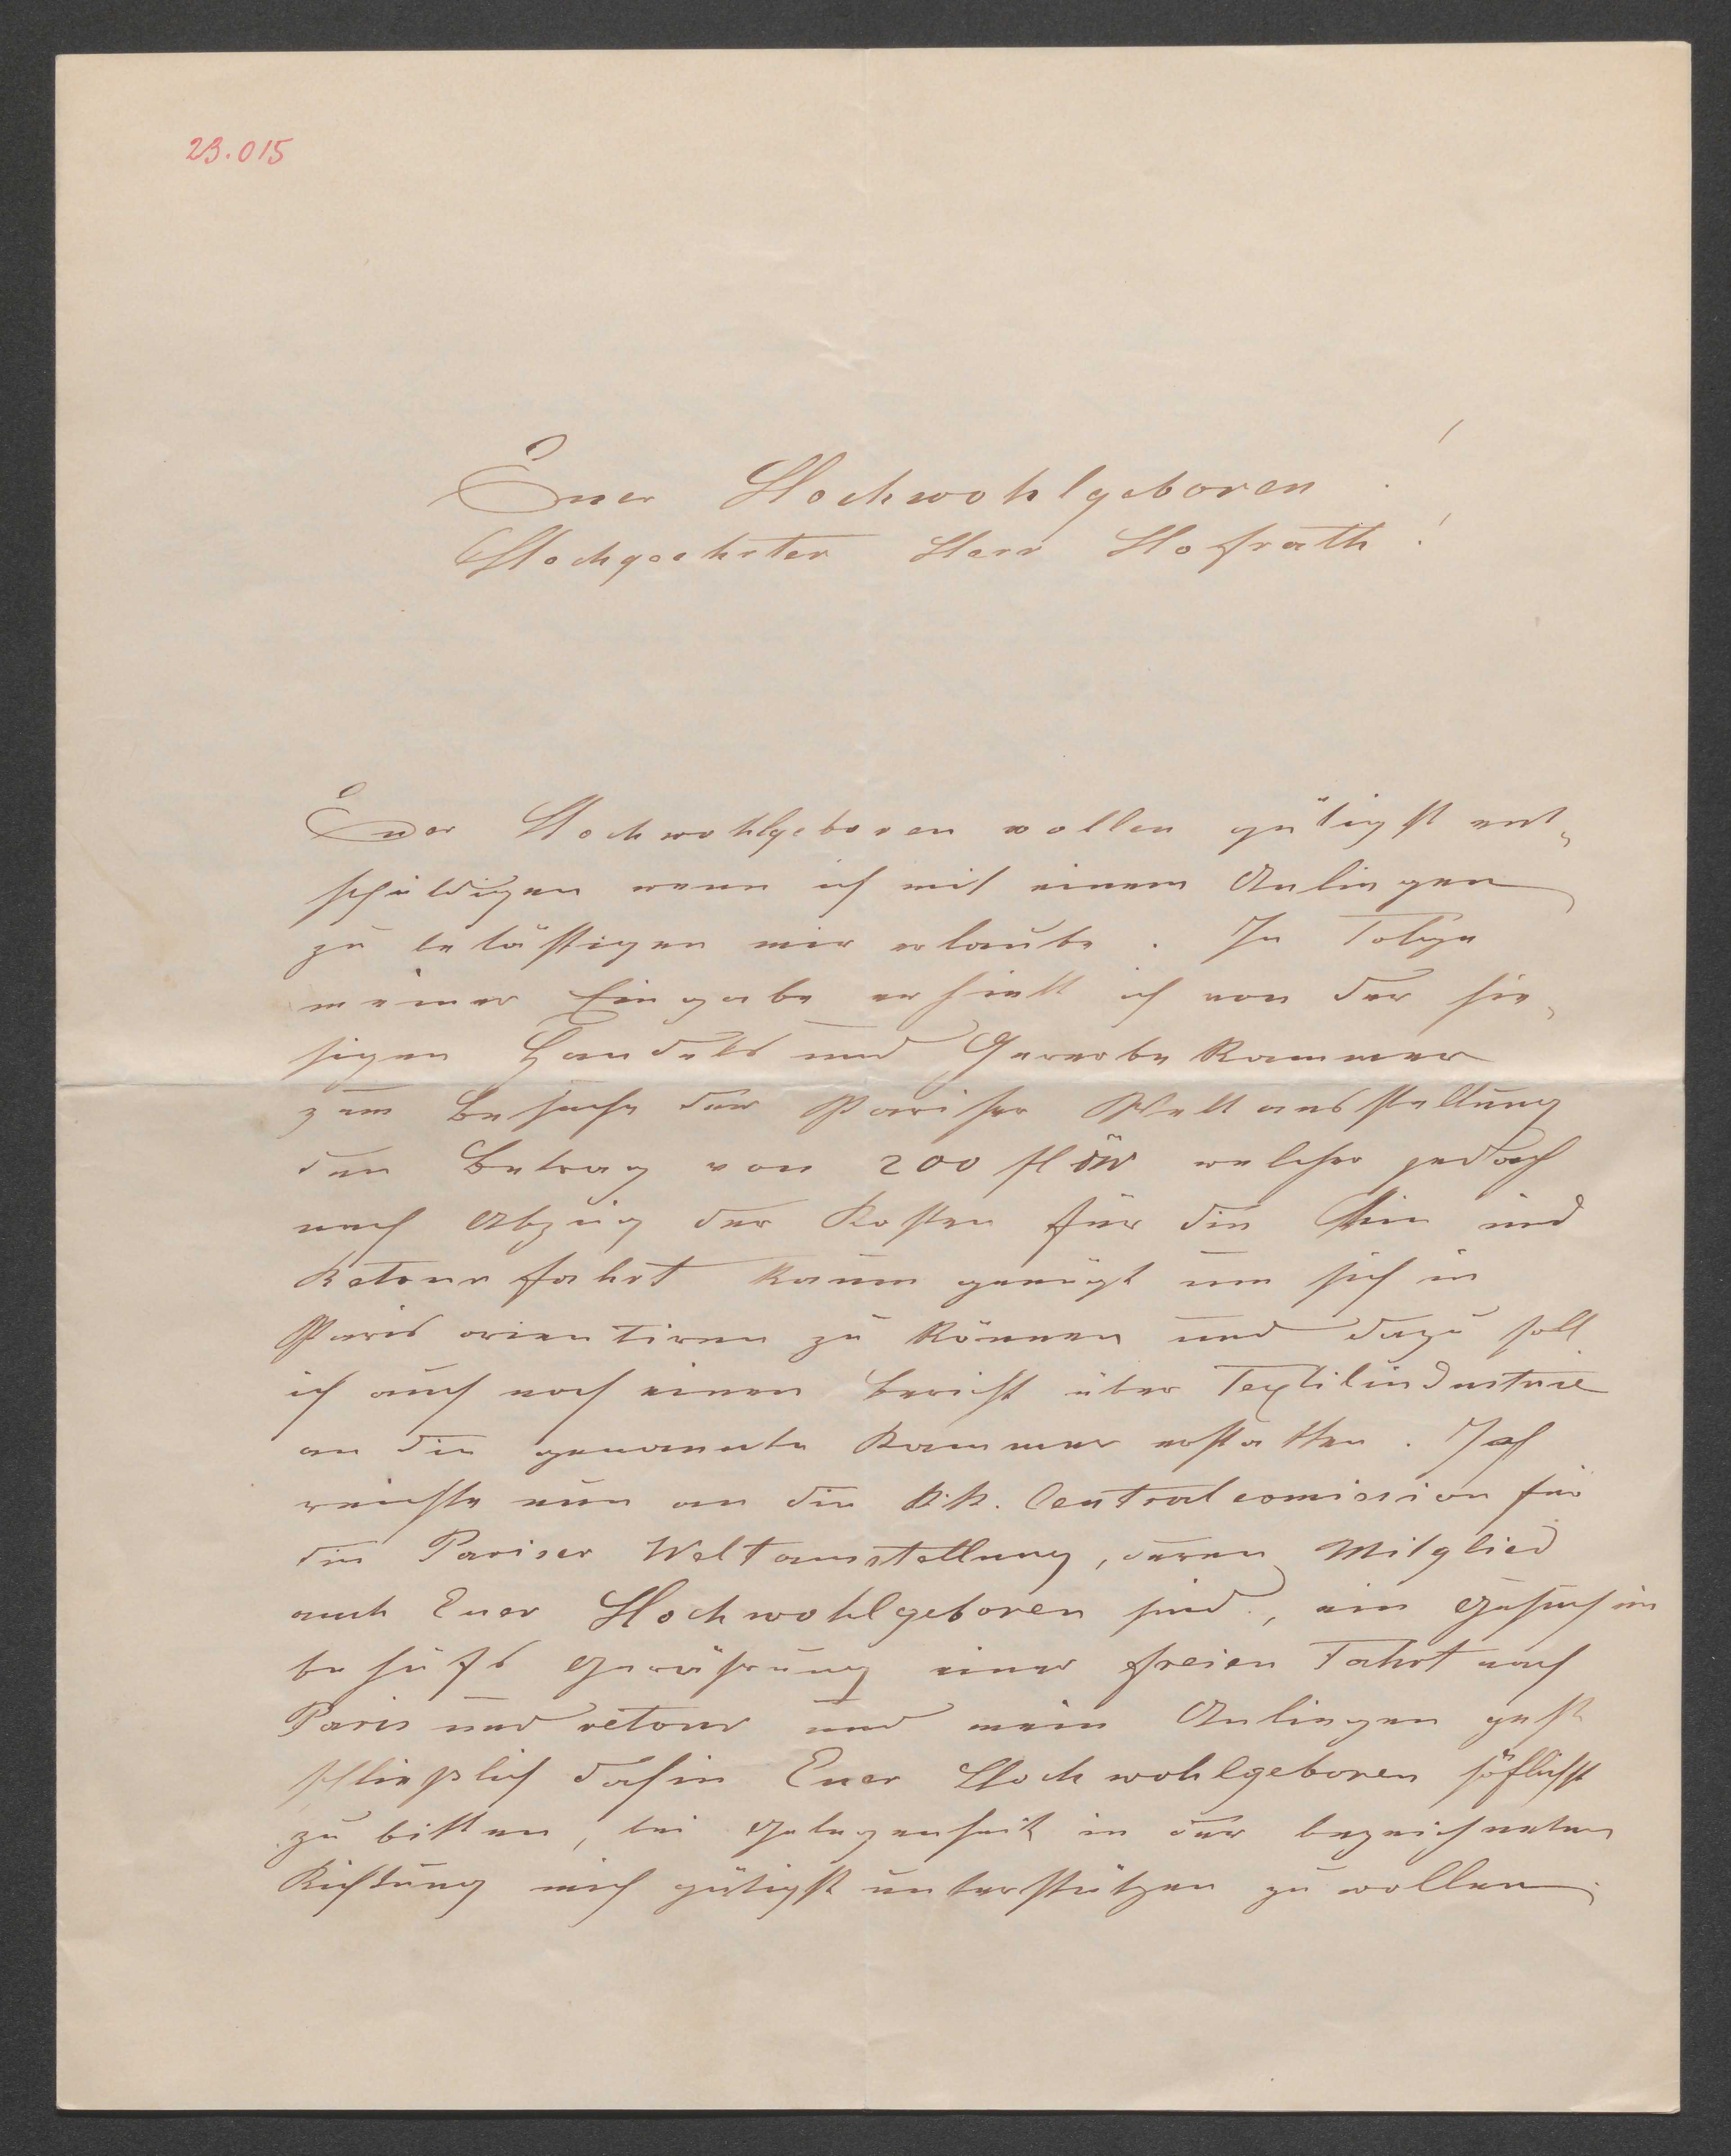 23.015
Euer Hochwohlgeboren !
Hochgeehrter Herr Hofrath !
Euer Hochwohlgeboren wollen gütigst ent-
schuldigen wenn ich mit einem Anliegen
zu belästigen mir erlaube. In Folge
meiner Eingabe erhielt ich von der hie-
sigen Handels und Gewerbekammer
zum Besuche der Pariser Weltausstellung
den Betrag von 200 fl öW welcher jedoch
nach Abzug der Kosten für die Hin und
Retourfahrt kaum genügt um sich in
Paris orientiren zu können und dazu soll
ich auch noch einen Bericht über Textilindustrie
an die genannte Kammer erstatten. Ich
reichte nun an die k.k. Centralcomission für
die Pariser Weltausstellung, deren Mitglied
auch Euer Hochwohlgeboren sind, ein Gesuch ein
behufs Gewährung einer freien Fahrt nach
Paris und retour und mein Anliegen geht
schließlich dahin Euer Hochwohlgeboren höflichst
zu bitten, bei Gelegenheit in der bezeichneten
Richtung mich gütigst unterstützen zu wollen.